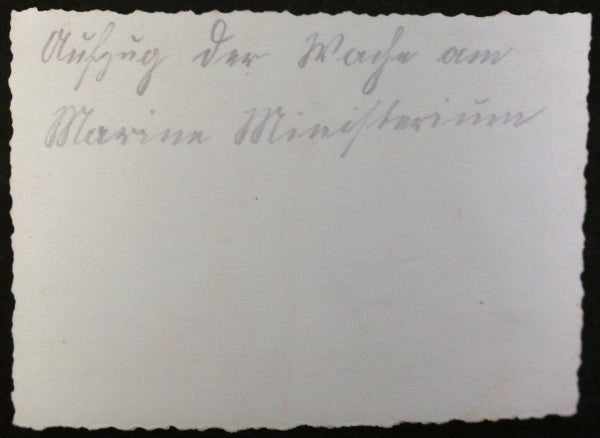 Aufzug der Wache am
Marine Ministerium